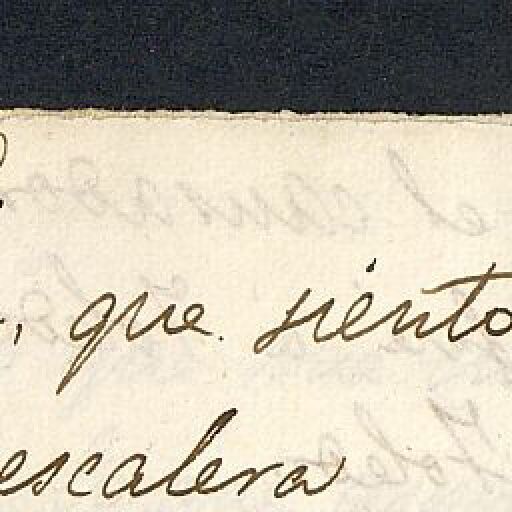 , que siento
escalera